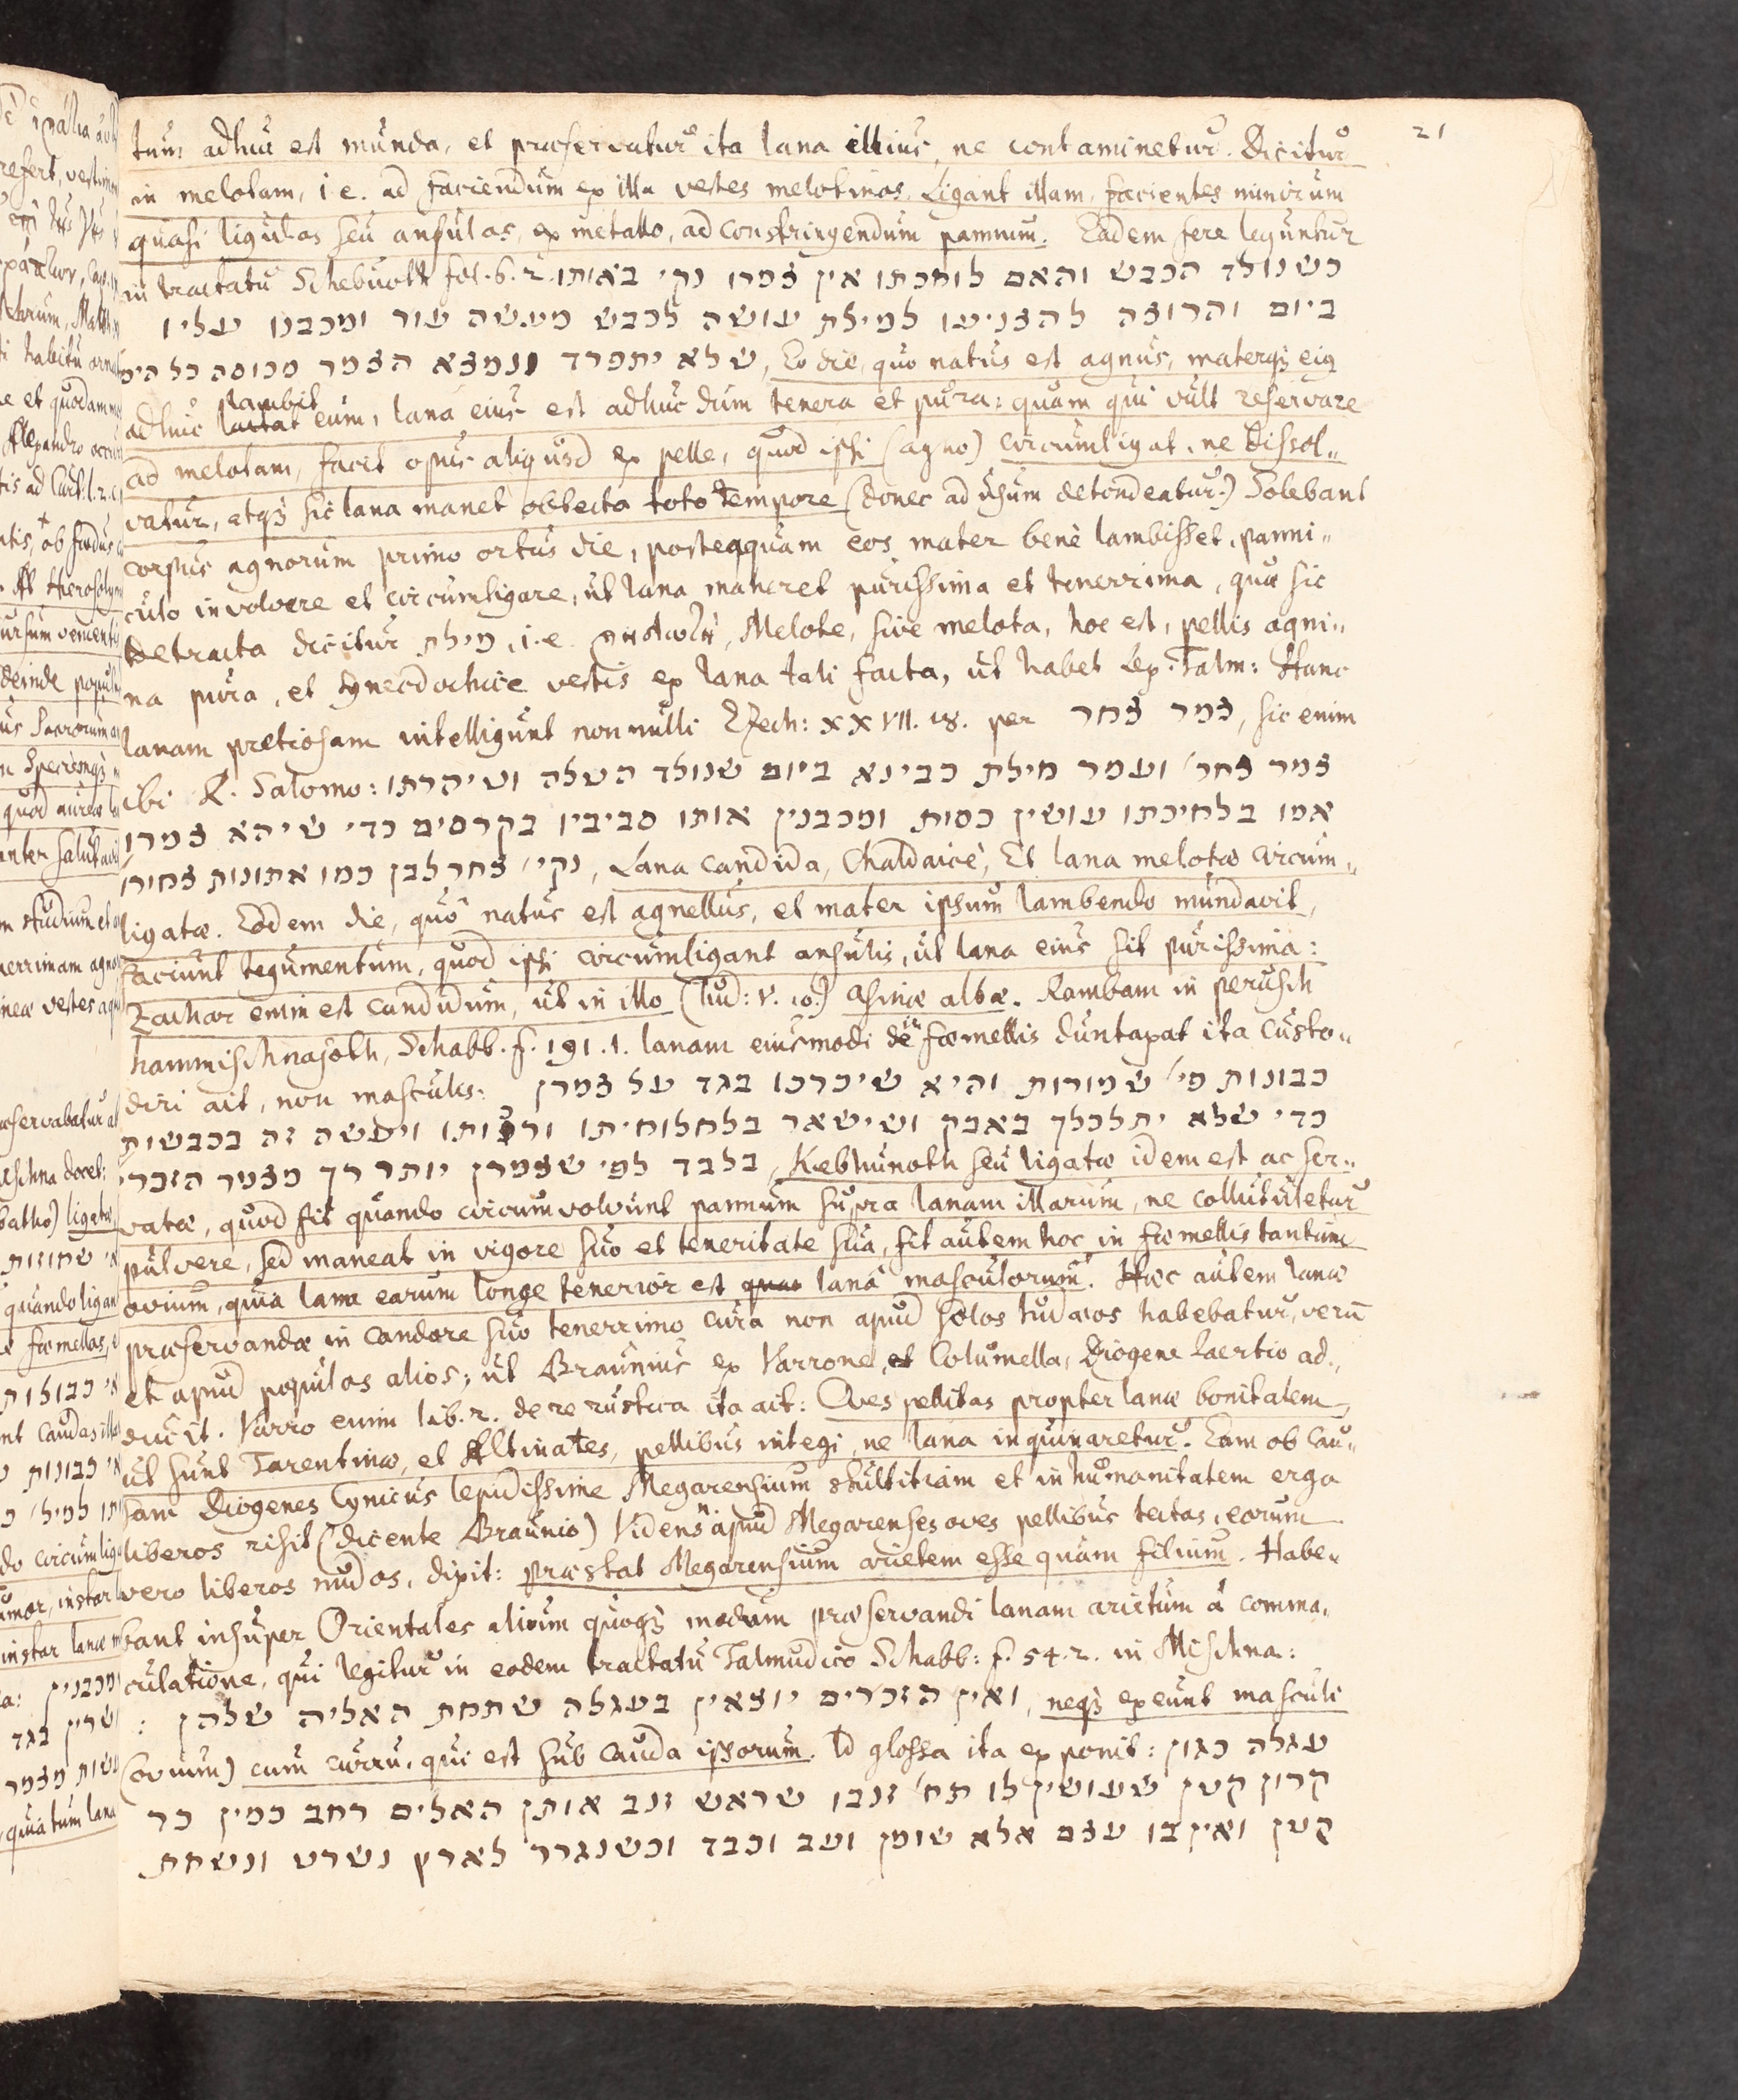 21
tum adhuc est munda, et præservatur ita lana illius, ne contaminetur. Dicitur
in melotam, i.e. ad faciendum ex illa vestes melotinas. Ligant illam, facientes nimirum
quasi ligulas seu ansulas, ex metallo, ad constringendum pannum. Eadem fere leguntur
in tractatu Schebuoth fol. 6. 2. כשנולד הכבש והאם לוחכתו אין צמרו נקי באותו
ביום והרוצה להצניעו למילת עושה לכבש מעשה עור ומכבנו עליו
שלא יתפרד ונמצא הצמר מכוסה כל הימ, Eo die, quo natus est agnus, materq; eiq
adhuc lactat lambit eum, lana eius est adhuc dum tenera et pura: quam qui vult reservare
ad melotam, facit opus aliquod ex pelle, quod ipsi (agno) circumligat, ne dissol„
vatur, atq; sic lana manet obtecta toto tempore (donec ad usum detondeatur.) Solebant
corpus agnorum primo ortus die, posteaquam eos mater benè lambisset, panni„
culo involvere et circumligare, ut lana maneret purissima et tenerrima, quæ sic
detracta dicitur מילת, i.e. μηλωτὴ, Melote, sive melota, hoc est, pellis agni„
na pura, et synecdochice vestis ex lana tali facta, ut habet Lex. Talm: Hanc
lanam pretiosam intelligunt nonnulli Ezech: XXVII. 18. per צמר צחר, sic enim
ibi R. Salomo: צמר צחר׳ ועמר מילת כבינא ביום שנולד הטלה ושיהרתו
אמו בלחיכתו עושין כסות ומכבנין אותו סביביו בקרסים כדי שיהא צמרו
נקי׳ צחר לבן כמו אתונות צחורו, Lana candida, Chaldaicè, Et lana melotæ circum„
ligatæ. Eodem die, quô natus est agnellus, et mater ipsum lambendo mundavit,
faciunt tegumentum, quod ipsi circumligant ansulis, ut lana eius sit purissima:
Zachar enim est candidum, ut in illo (Jud: V. 10.) asinæ albæ. Rambam in perusch
hammischnajoth, Schabb. f. 191. 1. lanam eiusmodi de in fœmellis duntaxat ita custo„
diri ait, non masculis: כבונות פי׳ שמורות והיא שיכרכו בגד על צמרן
כדי שלא יתלכלך באבק ושישאר בלחלוחיתו ורכותו ויעשה זה בכבשות
בלבד לפי שצמרן יותר רך מצמר הזכרי, Kebhunoth seu ligatæ idem est ac ser„
vatæ, quod fit quando circumvolvunt pannum supra lanam illarum, ne collutuletur
pulvere, sed maneat in vigore suo et teneritate sua, fit autem hoc in fœmellis tantum
ovium, quia lana earum longe tenerior est quas lanâ masculorum. Hæc autem lanæ
præservandæ in candore suo tenerrimo cura non apud solos Judæos habebatur, verū
et apud populos alios; ut Braunius ex Varrone, et Columella, Diogene Laertio ad„
ducit. Varro enim lib. 2. de re rustica ita ait: Oves pellitas propter lanæ bonitatem,
ut sunt Tarentinæ, et Altinates, pellibus integi, ne lana inquinaretur. Eam ob cau„
sam Diogenes Cynicus lepidissime Megarensium stultitiam et inhumanitatem erga
liberos risit (dicente Braunio) Videns n. apud Megarenses oves pellibus tectas, eorum
vero liberos nudos, dixit: præstat Megarensium arietem esse quam filium. Habe„
bant insuper Orientales alium quoq; modum præservandi lanam arietum â comma„
culatione, qui legitur in eodem tractatu Talmudico Schabb: f. 54. 2. in Mischna:
ואין הזכרים יוצאין בעגלה שתחת האליה שלהן :, neq; exeunt masculi
(ovium) cum curru, qui est sub cauda ipsorum. Id glossa ita exponit: עגלה כגון
קרון קטן שעושין לו תח׳ זנבו שראש זנב אותן האלים רחב כמין כר
קטן ואין בו עצם אלא שומן ועב וכבד וכשנגרר לארץ נשרט ונשחת